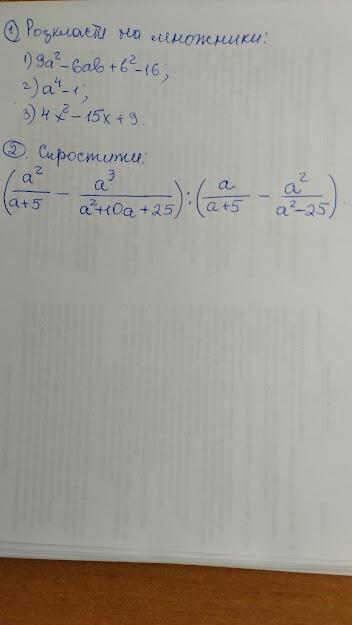 ① Розкласти на множники:
1) 9a² - 6ab + b² - 16;
2) a⁴ - 1;
3) 4x² - 15x + 9.
②. Спростити:
(a²/(a+5) - a³/(a²+10a+25)) : (a/(a+5) - a²/(a²-25)).